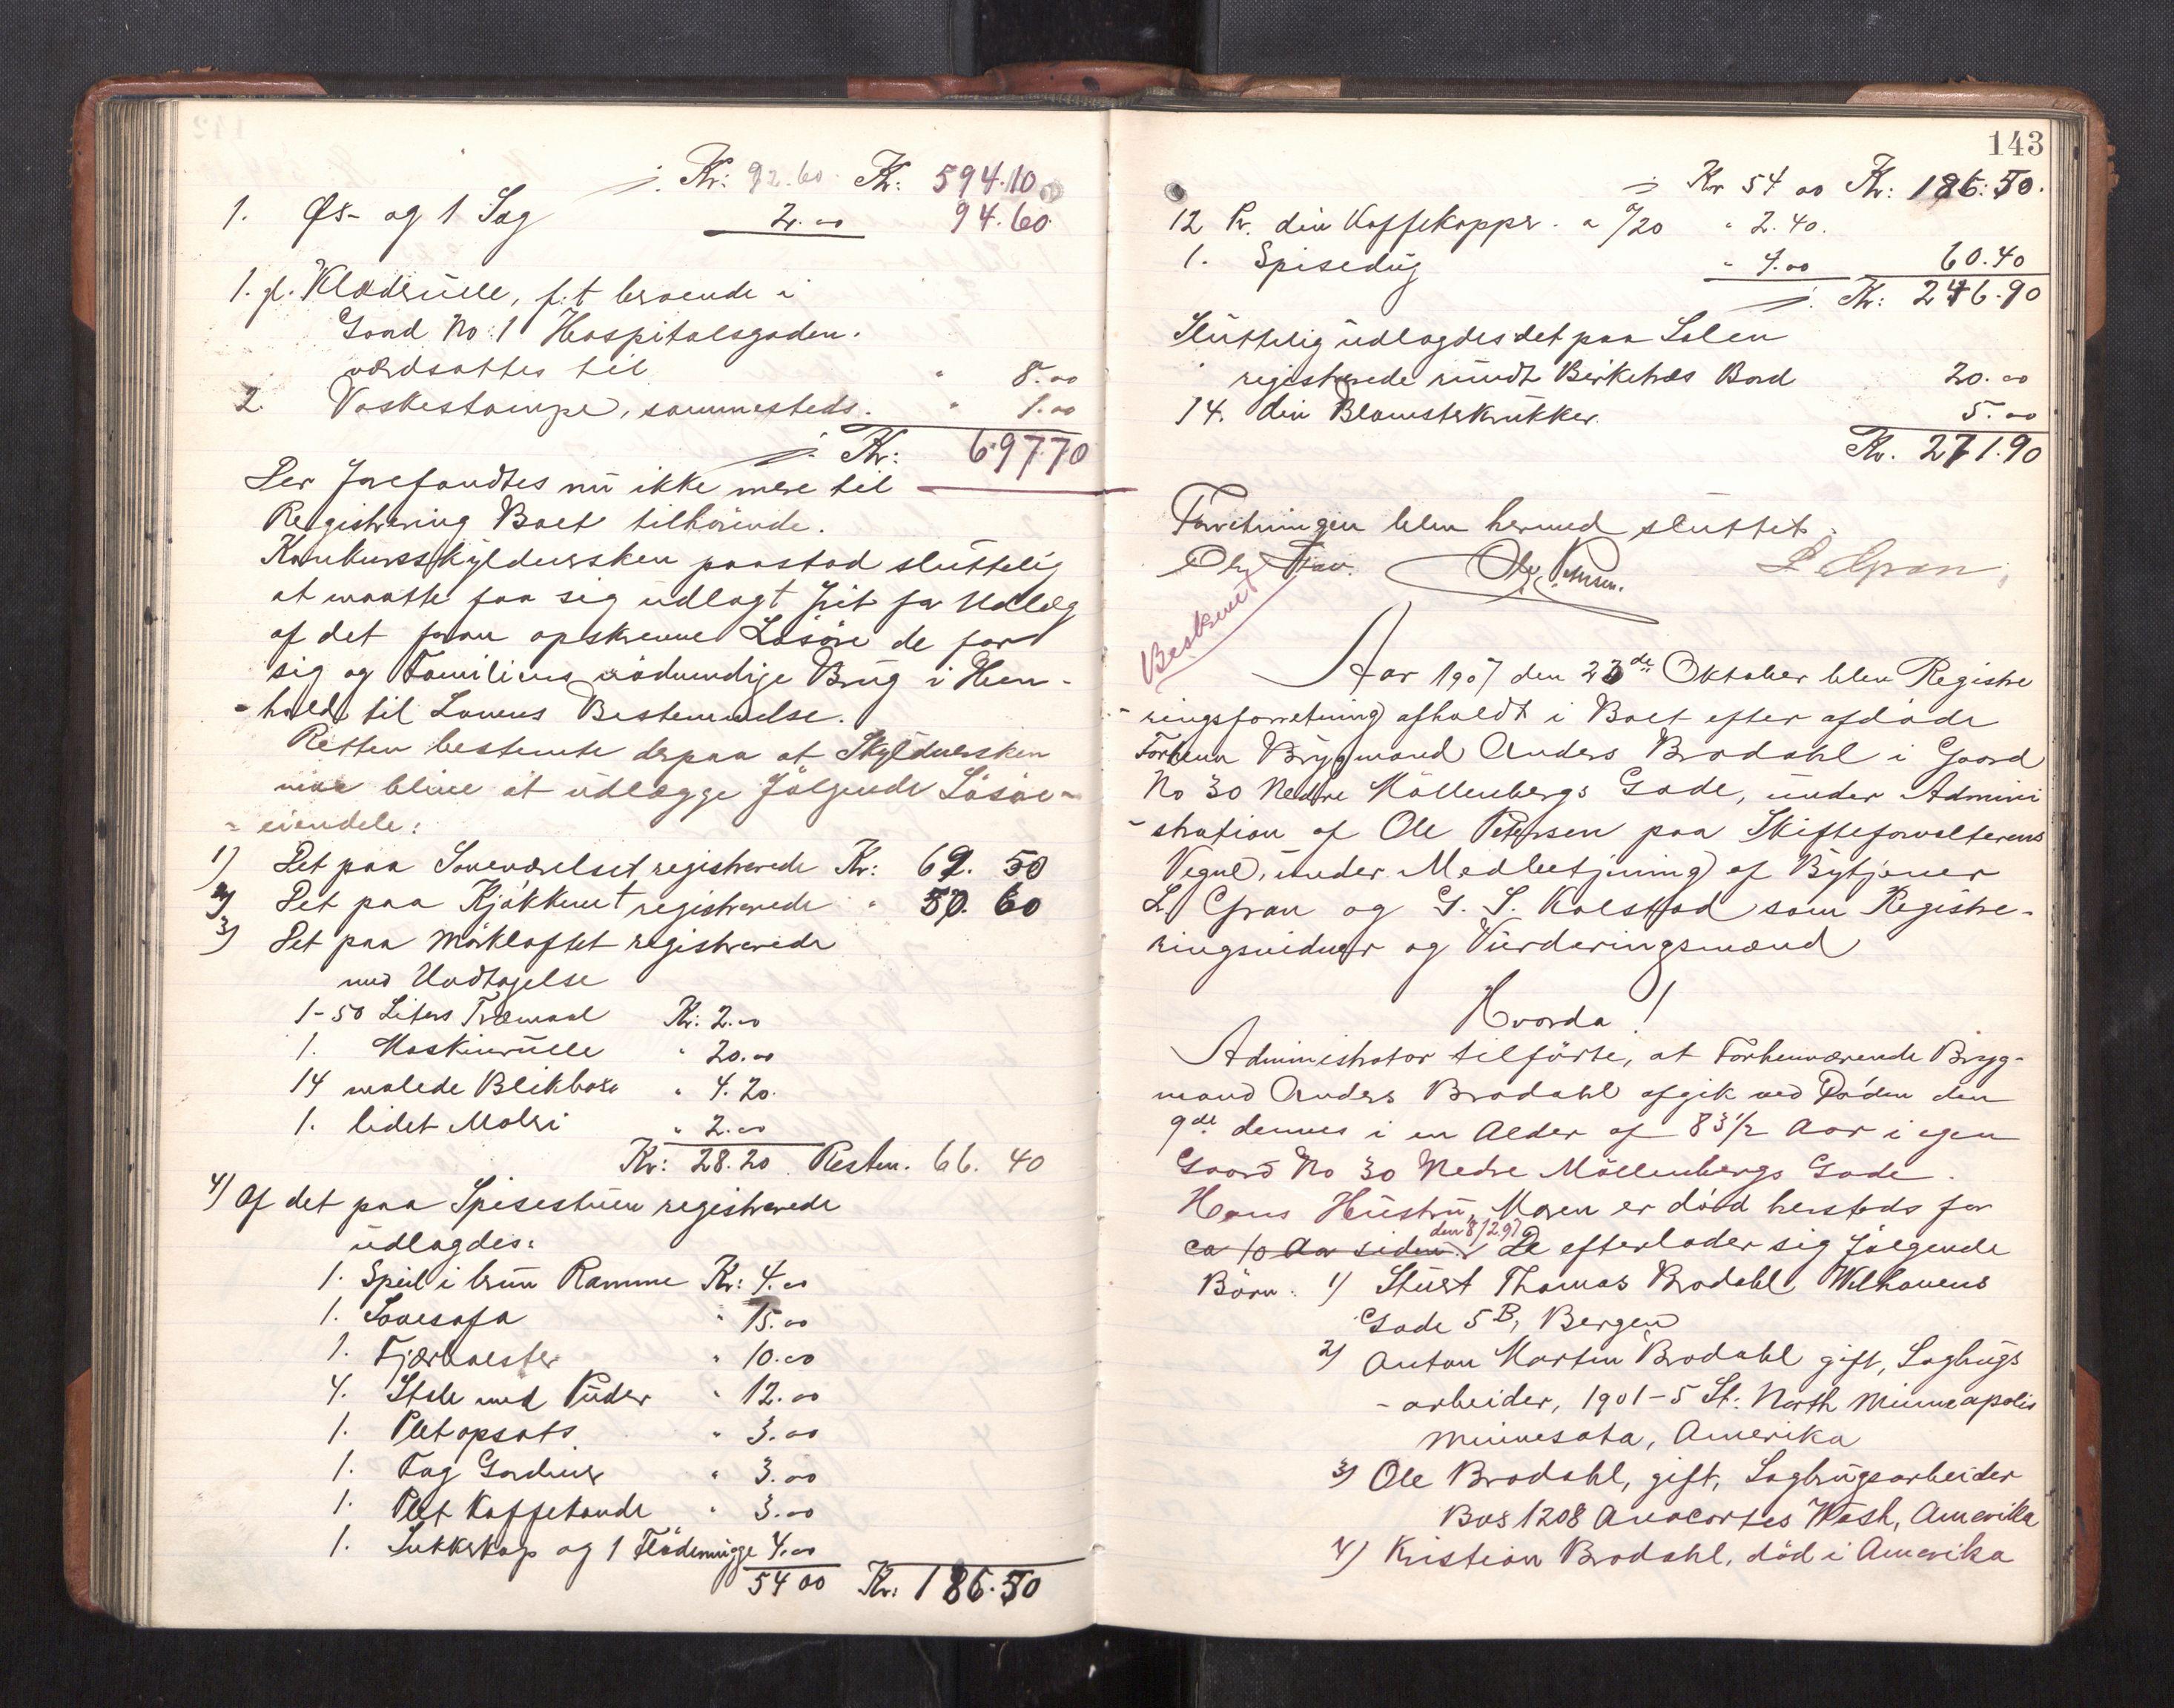 j. Kr: 92.60. Kr: 594.10
1. Øs- og 1 Sag 2.00 94.60
1. gl. Klædrulle, f.t. beroende i
Gaard No: 1 Hospitalsgaden.
værdsattes til " 8.00
2. Vaskestampe, sammesteds. " 1.00
j. Kr: 697.70
Der forefandtes nu ikke mere til
Registrering Boet tilhørende.
Konkursskyldnersken paastod sluttelig
at maatte faa sig udlagt frit for Udlæg
af det foran opskrevne Løsøre de for
sig og Familiens nødvendige Brug i Hen-
-hold til Lovens Bestemmelse.
Retten bestemte derpaa at Skyldnersken
vil blive at udlægge følgende Løsøre-
- eiendele:
1) Det paa Soveværelset registrerede Kr: 69. 50
2) Det paa Kjøkkenet registrerede " 50. 60
3) Det paa Mørkloftet registrerede
med Undtagelse
1-50 Liters Træmaal Kr: 2.00
1. Maskinrulle " 20.00
14 malede Blikbokse " 4.20.
1. lidet Maleri " 2.00
Kr: 28.20. Resten. 66. 40
4) Af det paa Spisestuen registrerede
udlagdes:
1. Speil i brun Ramme Kr: 4.00
1. Sovesofa " 15.00
1. Fjærholster " 10.00
4. Stole med Puder " 12.00
1. Pletopsats " 3.00
1. Fag Gardiner " 3.00
1. Plet Kaffekande " 3.00
1. Sukkerkop og 1 Flødemugge 4.00
54 00 Kr: 186.50
143
j Kr 54 00 Kr: 186.50.
12 Pr. div Kaffekopper. a /20 " 2.40.
1. Spisedug " 4.00 60.40
j. Kr: 246.90
Sluttelig udlagdes det paa Salen
registrerede rundt Birketræs Bord 20.00
14. div Blomsterkrukker. 5.00
Kr. 271.90
Forretningen blev hermed sluttet.
Ole Petersen. L Gran.
Beskrevet
Aar 1907 den 23de Oktober blev Registre
- ringsforretning afholdt i Boet efter afdøde
Forhenv Brygmand Anders Brodahl i Gaard
No 30 Nedre Møllenbergs Gade, under Admini
- stration af Ole Petersen paa Skifteforvalterens
Vegne, under Medbetjening af Bytjener
L. Gran og G. S. Kolstad som Registre-
ringsvidner og Vurderingsmænd
Hvorda!
Administrator tilførte, at Forhenværende Bryg-
mand Anders Brodahl afgik ved Døden den
9de dennes i en Alder af 83 1/2 Aar i egen
Gaard No 30 Nedre Møllenbergs Gade.
Hans Hustru, Maren er død hersteds for
den 8/2.97
ca 10 Aar siden. De efterlader sig følgende
Børn: 1) Stuert Thomas Brodahl Welhavens
Gade 5B, Bergen
2) Anton Martin Brodahl gift, Sagbrugs
- arbeider, 1901-5 St: North Minneapolis
Minnesota, Amerika
3) Ole Brodahl, gift, Sagbrugsarbeider
Box 1208 Anacortes Wash, Amerika
4) Kristian Brodahl, død i Amerika